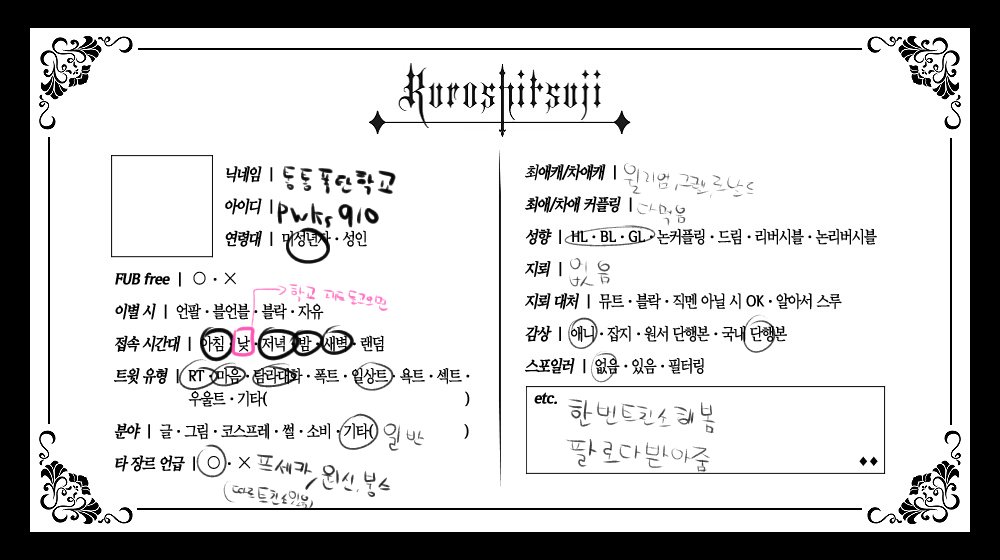 Kuroshitsuji
닉네임 | 통통폭탄학교
아이디 | pwks910
연령대 | 미성년자 · 성인
FUB free | ○ · ×
학교
이별 시 | 언팔 · 블언블 · 블락 · 자유
접속 시간대 | 아침 · 낮 · 저녁 · 밤 · 새벽 · 랜덤
트윗 유형 | RT · 마음 · 탐라대화 · 폭트 · 일상트 · 욕트 · 섹트 ·
우울트 · 기타( )
분야 | 글 · 그림 · 코스프레 · 썰 · 소비 · 기타( 일반 )
타 장르 언급 | ○ · × 프세카, 원신, 붕스
(따로 트친소 있음)
최애캐/차애캐 | 윌리엄, 그렐, 로날드
최애/차애 커플링 | 다먹음
성향 | HL · BL · GL · 논커플링 · 드림 · 리버시블 · 논리버시블
지뢰 | 없음
지뢰 대처 | 뮤트 · 블락 · 직멘 아닐 시 OK · 알아서 스루
감상 | 애니 · 잡지 · 원서 단행본 · 국내 단행본
스포일러 | 없음 · 있음 · 필터링
etc.
한번트친소해봄
팔로다받아줌